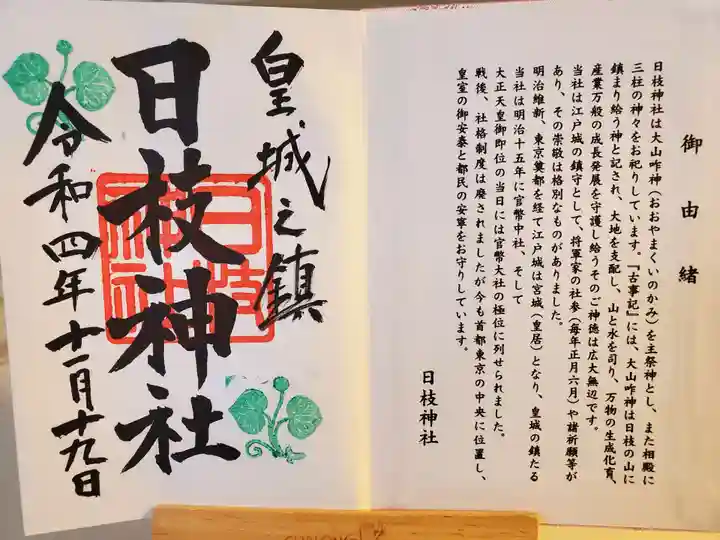 御由緒
日枝神社は大山咋神（おおやまくいのかみ）を主祭神とし、また相殿に
三柱の神々をお祀りしています。『古事記』には、大山咋神は日枝の山に
鎮まり給う神と記され、大地を支配し、山と水を司り、万物の生成化育、
産業万般の成長発展を守護し給うそのご神徳は広大無辺です。
当社は江戸城の鎮守として、将軍家の社参（毎年正月六月）や諸祈願等が
あり、その崇敬は格別なものがありました。
明治維新、東京奠都を経て江戸城は宮城（皇居）となり、皇城の鎮たる
当社は明治十五年に官幣中社、そして
大正天皇御即位の当日には官幣大社の極位に列せられました。
戦後、社格制度は廃されましたが今も首都東京の中央に位置し、
皇室の御安泰と都民の安寧をお守りしています。
日枝神社
皇城之鎮
日枝神社
日枝神社
令和四年十一月十九日